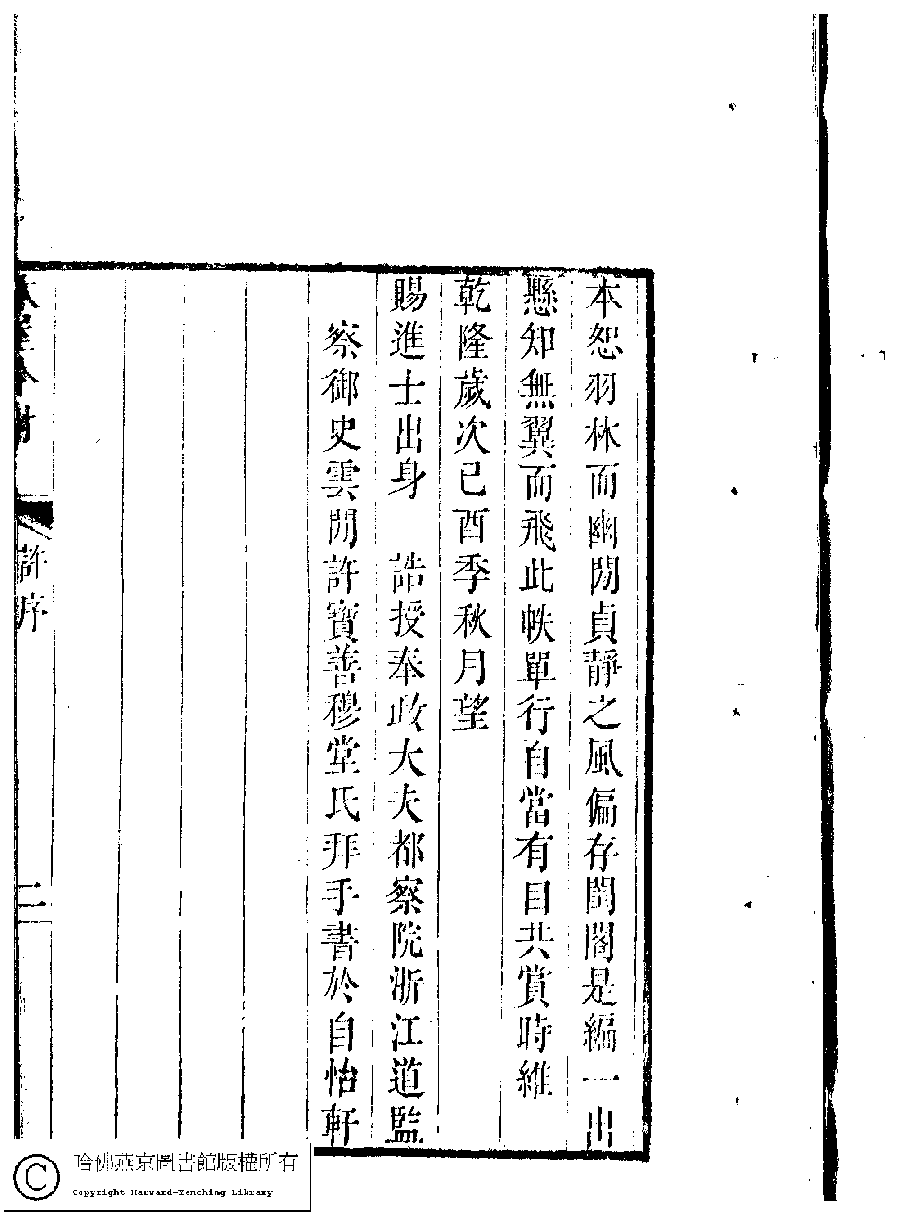 本恕羽林而幽閒貞靜之風偏存閨閤是編一出
懸知無翼而飛此帙單行自當有目共賞時維
乾隆歲次己酉季秋月望
賜進士出身　誥授奉政大夫都察院浙江道監
察御史雲閒許寶善穆堂氏拜手書於自怡軒
許序
二
哈佛燕京圖書館版權所有
Copyright Harvard-Yenching Library